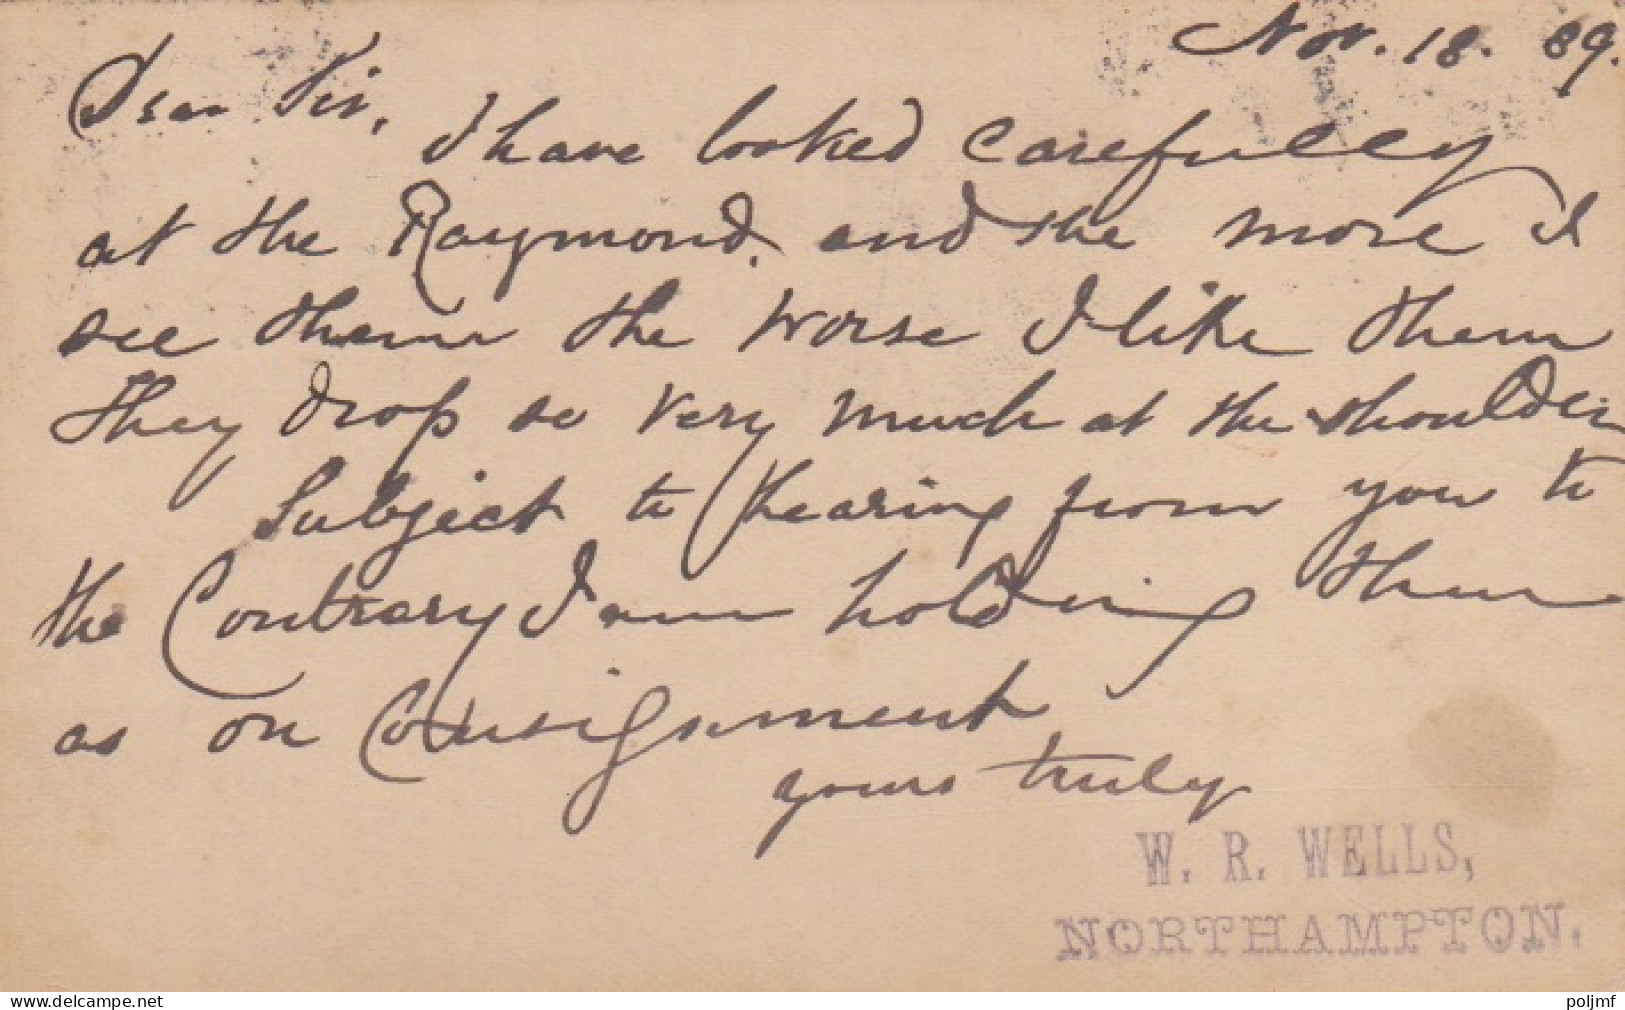 Nov. 18. 89.
Dear Sir,
I have looked carefully
at the Raymond. and the more I
see them the worse I like them
They drop so very much at the shoulder
Subject to hearing from you to
the Contrary I am holding them
as on Consignment
yours truly
W. R. WELLS,
NORTHAMPTON.
www.delcampe.net
poljmf